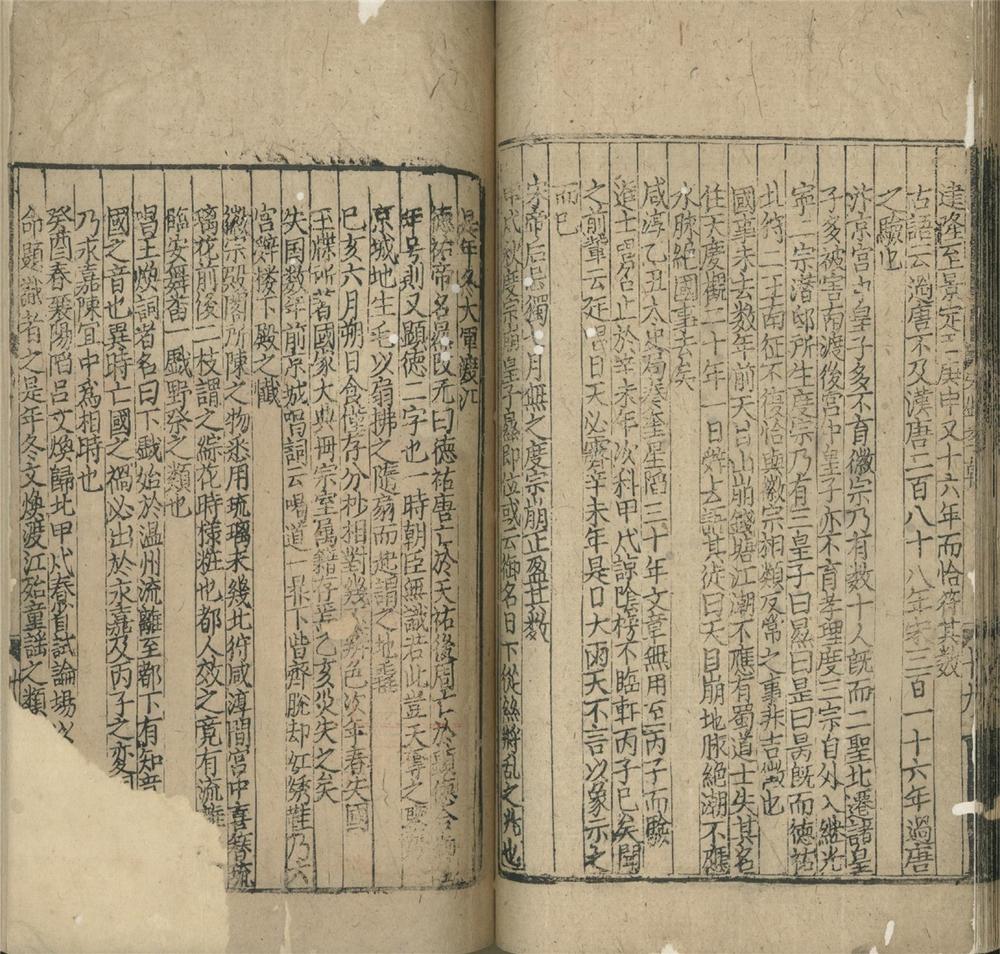 建隆至景定庚申又十六年而恰符其数
古語云過唐不及漢唐二百八十八年宋三百一十六年過唐
之驗也
汴京宫中皇子多不育徽宗乃有数十人既而二聖北遷諸皇
子多被害南渡後宫中皇子亦不育孝理度三宗自外入継光
寧一宗潜邸所生度宗乃有三皇子曰㬎曰昰曰昺既而德祐
北狩二王南征不復恰與徽宗相類反常之事非吉徴也
國事未去数年前天目山崩錢塘江潮不應有蜀道士失其名
住天慶觀二十年一日辤去語其徒曰天目崩地脉絶潮不應
水脉絶國事去矣
咸淳乙丑太史局奏奎星陷三十年文章無用至丙子而驗
進士唱名止於辛未年次科甲戌諒陰榜不臨軒丙子已矣聞
之前輩云廷唱日天必霽辛未年是日大雨天不言以象示之
而已
宗帝后忌獨七月無之度宗崩正盈其数
度宗崩皇子㬎即位或云御名日下從絲將乱之兆也
是年冬大軍渡江
德祐帝名㬎改元曰德祐唐亡於天祐後周亡於顕德合
年号則又顕德二字也一時朝臣無識若此豈天導之
京城地生毛以扇拂之隨扇而起謂之地
巳亥六月朔日食僅存分抄相對幾不辨色次年春失國
王㷍所著國家大典冊宗室属籍存焉乙亥災失之矣
失国数年前京城唱詞云喝道一聲下堦齊脫却紅绣鞵乃六
宫辤楼下殿之讖
徽宗殿閣所陳之物悉用琉璃未幾北狩咸淳間宫中喜簮琉
璃花前後二枝謂之綜花時様粧也都人效之竟有流離
臨安舞笛一戲野祭之類也
唱王焕詞者名曰下戲始於温州流離至鄰下有知音
國之音也異時亡國之禍必出於永嘉及丙子之变
乃永嘉陳宜中為相時也
癸酉春襄陽陷吕文焕歸北甲戌春省試論場以
命題識者之是年冬文焕渡江始童謡之類